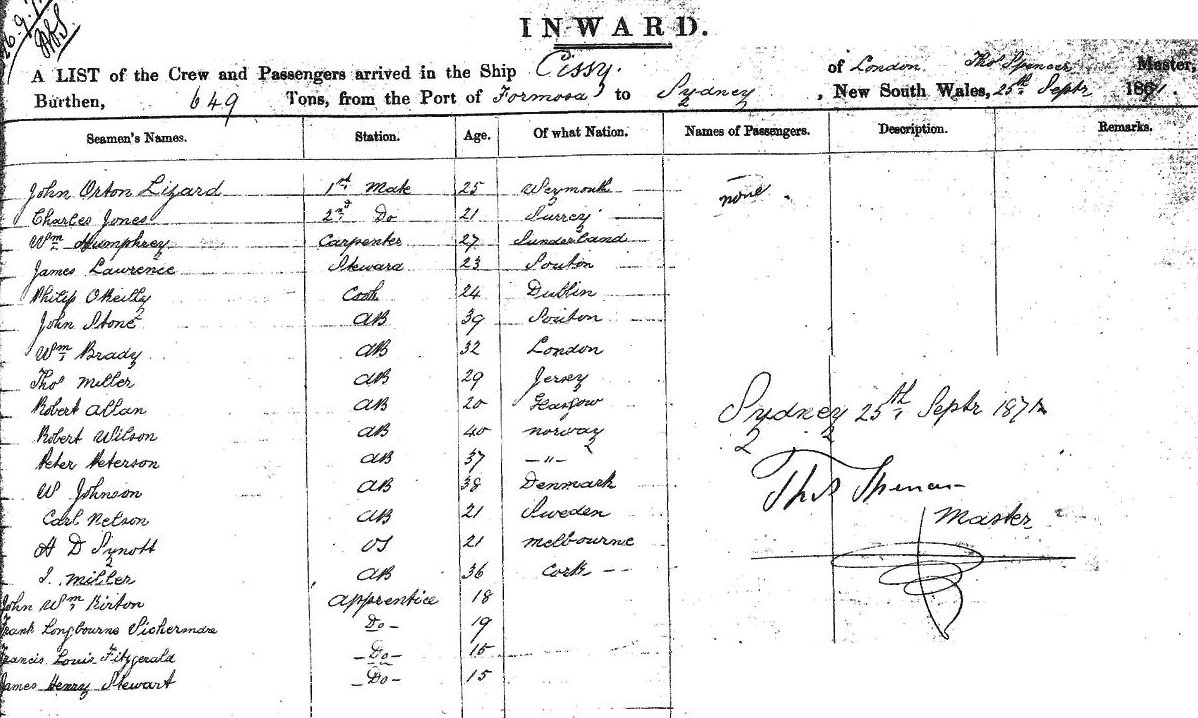 26.9.71
INWARD.
A LIST of the Crew and Passengers arrived in the Ship Cissy. of London Thos Spencer Master,
Burthen, 649 Tons, from the Port of Formosa to Sydney, New South Wales, 25th Septr 1871.
Seamen's Names. Station. Age. Of what Nation. Names of Passengers. Description. Remarks.
John Orton Lizard 1st Mate 25 Weymouth none.
Charles Jones 2nd Do 21 Surrey
Wm Humphrey Carpenter 27 Sunderland
James Lawrence Steward 23
Philip OReilly Cook 24 Dublin
John Stone AB 39
Wm Brady AB 32 London
Thos Miller AB 29 Jersey
Robert Allan AB 20 Glasgow
Robert Wilson AB 40 Norway
Peter Peterson AB 37 —"—
W Johnson AB 38 Denmark
Carl Nelson AB 21 Sweden
H D Synott OS 21 Melbourne
J. Miller AB 36 Cork —
John Wm Kirton Apprentice 18
Frank Longbourne Do 19
Francis Louis Fitzgerald Do 15
James Henry Stewart Do 15
Sydney 25th Septr 1871
Thos Spencer
Master